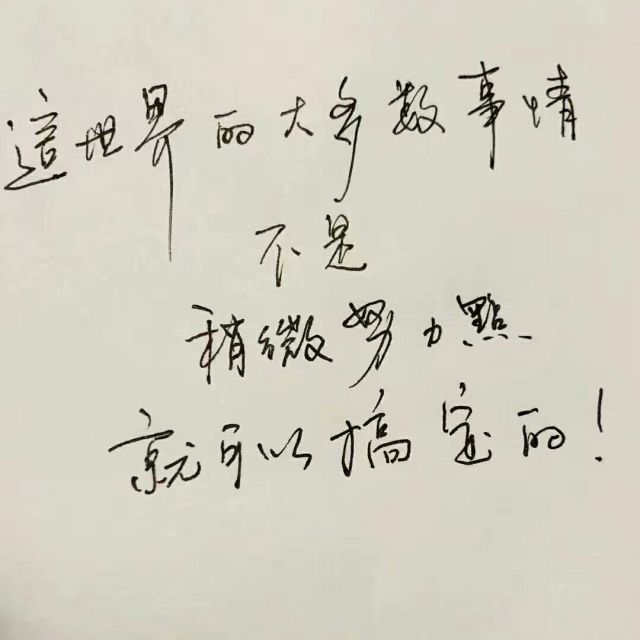 這世界的大多数事情
不是
稍微努力點
就可以搞定的！